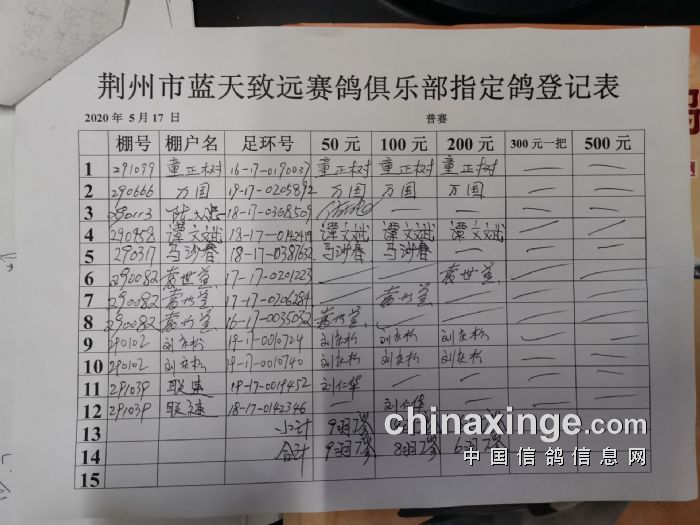 荆州市蓝天致远赛鸽俱乐部指定鸽登记表
2020 年 5 月 17 日 普赛
棚号 棚户名 足环号 50 元 100 元 200 元 300 元一把 500 元
1 291099 童正树 16-17-0190037 童正树 童正树 童正树 — —
2 290666 万国 19-17-0205892 万国 万国 万国 — —
3 290113 18-17-0368509 — — — —
4 290958 谭文斌 18-17-0142419 谭文斌 谭文斌 谭文斌 — —
5 290317 马沙春 18-17-0387632 马沙春 马沙春 — — —
6 290082 17-17-0201223 — — — —
7 290082 17-17-0206284 — — — —
8 290082 16-17-0035032 — — — —
9 290102 刘庆松 19-17-0010724 刘庆松 刘庆松 刘庆松 — —
10 290102 刘庆松 19-17-0010740 刘庆松 刘庆松 刘庆松 — —
11 291039 联速 19-17-0019452 刘仁华 — — — —
12 291039 联速 18-17-0142346 — 刘仁华 — — —
13 小计 9羽
14 合计 9羽 8羽 6羽
15
chinaxinge.com
中国信鸽信息网